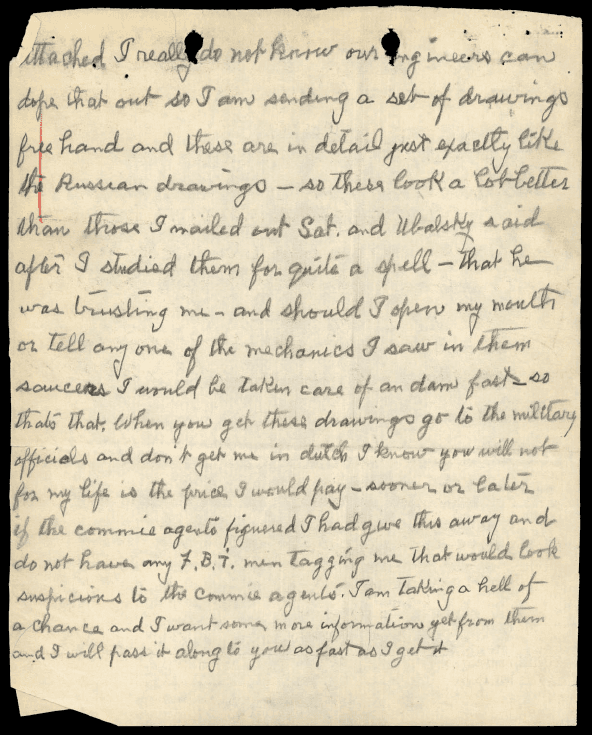 attached I really do not know our engineers can
dope that out so I am sending a set of drawings
free hand and these are in detail just exactly like
the Russian drawings – so these look a lot better
than those I mailed out Sat. and Ubalsky said
after I studied them for quite a spell – that he
was trusting me – and should I open my mouth
or tell any one of the mechanics I saw in them
saucers I would be taken care of an dam fast – so
thats that. When you get these drawings go to the military
officials and don't get me in dutch I know you will not
for my life is the price I would pay – sooner or later
if the commie agents figuered I had give this away and
do not have any F.B.I. men tagging me that would look
suspicions to the commie agents. I am taking a hell of
a chance and I want some more informations yet from them
and I will pass it along to you as fast as I get it